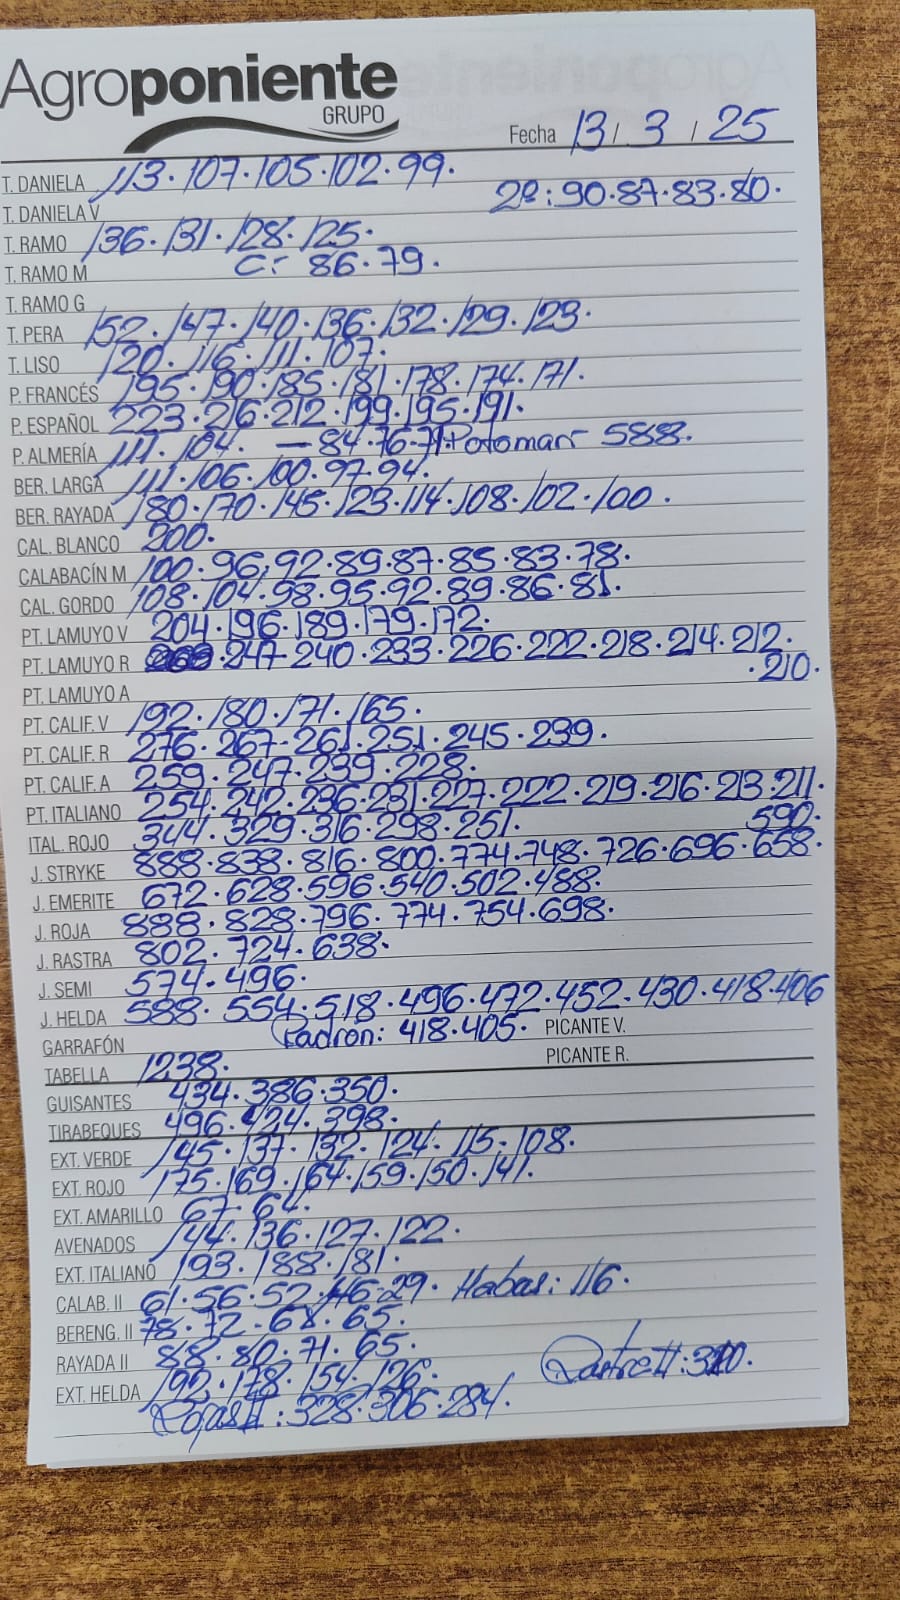 Agroponiente
GRUPO
Fecha 13 / 3 / 25
T. DANIELA 113·107·105·102·99·
T. DANIELA V 2º: 90·87·83·80·
T. RAMO 136·131·128·125·
T. RAMO M C: 86·79·
T. RAMO G
T. PERA 152·147·140·136·132·129·123·
T. LISO 120·116·111·107·
P. FRANCÉS 195·190·185·181·178·174·171·
P. ESPAÑOL 223·216·212·199·195·191·
P. ALMERÍA 111·104· — 84·76·71· 588·
BER. LARGA 111·106·100·97·94·
BER. RAYADA 180·170·145·123·114·108·102·100·
CAL. BLANCO 200·
CALABACÍN M 100·96·92·89·87·85·83·78·
CAL. GORDO 108·104·98·95·92·89·86·81·
PT. LAMUYO V 204·196·189·179·172·
PT. LAMUYO R ·247·240·233·226·222·218·214·212·
·210·
PT. LAMUYO A
PT. CALIF. V 192·180·171·165·
PT. CALIF. R 276·267·261·251·245·239·
PT. CALIF. A 259·247·239·228·
PT. ITALIANO 254·242·236·231·227·222·219·216·213·211·
ITAL. ROJO 344·329·316·298·251· 590·
J. STRYKE 888·838·816·800·774·748·726·696·658·
J. EMERITE 672·628·596·540·502·488·
J. ROJA 888·828·796·774·754·698·
J. RASTRA 802·724·638·
J. SEMI 574·496·
J. HELDA 588·554·518·496·472·452·430·418·406
GARRAFÓN Padron: 418·405· PICANTE V.
TABELLA 1238· PICANTE R.
GUISANTES 434·386·350·
TIRABEQUES 496·424·398·
EXT. VERDE 145·137·132·124·115·108·
EXT. ROJO 175·169·164·159·150·141·
EXT. AMARILLO 67·64·
AVENADOS 144·136·127·122·
EXT. ITALIANO 193·188·181·
CALAB. II 61·56·52·46·29· Habas: 116·
BERENG. II 78·72·68·65·
RAYADA II 88·80·71·65·
EXT. HELDA 192·178·154·126·
Rojas II: 328·306·284·